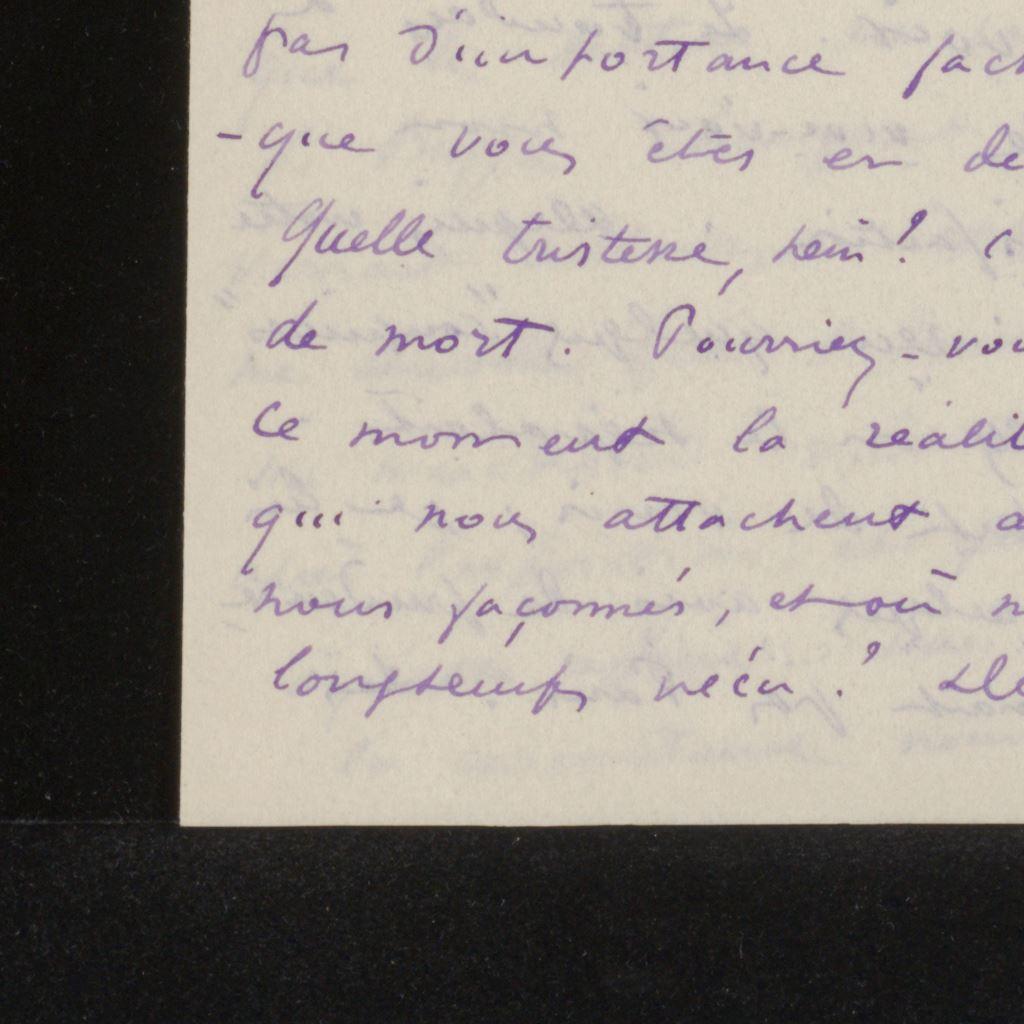 pas d'importance sach
-que vous êtes en de
Quelle tristesse, hein! C
de mort. Pourriez-vou
ce moment la réalit
qui nous attachent a
nous façonnés, et où n
longtemps vécu? De